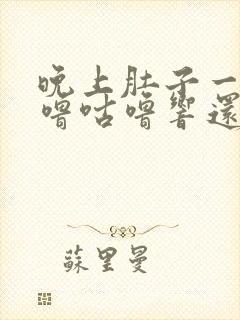 晚上肚子一
嚕咕嚕響還
蘇里曼